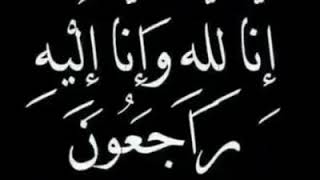 إنَّا لله وَإنَا إليْهِ
رَاجَعُونَ